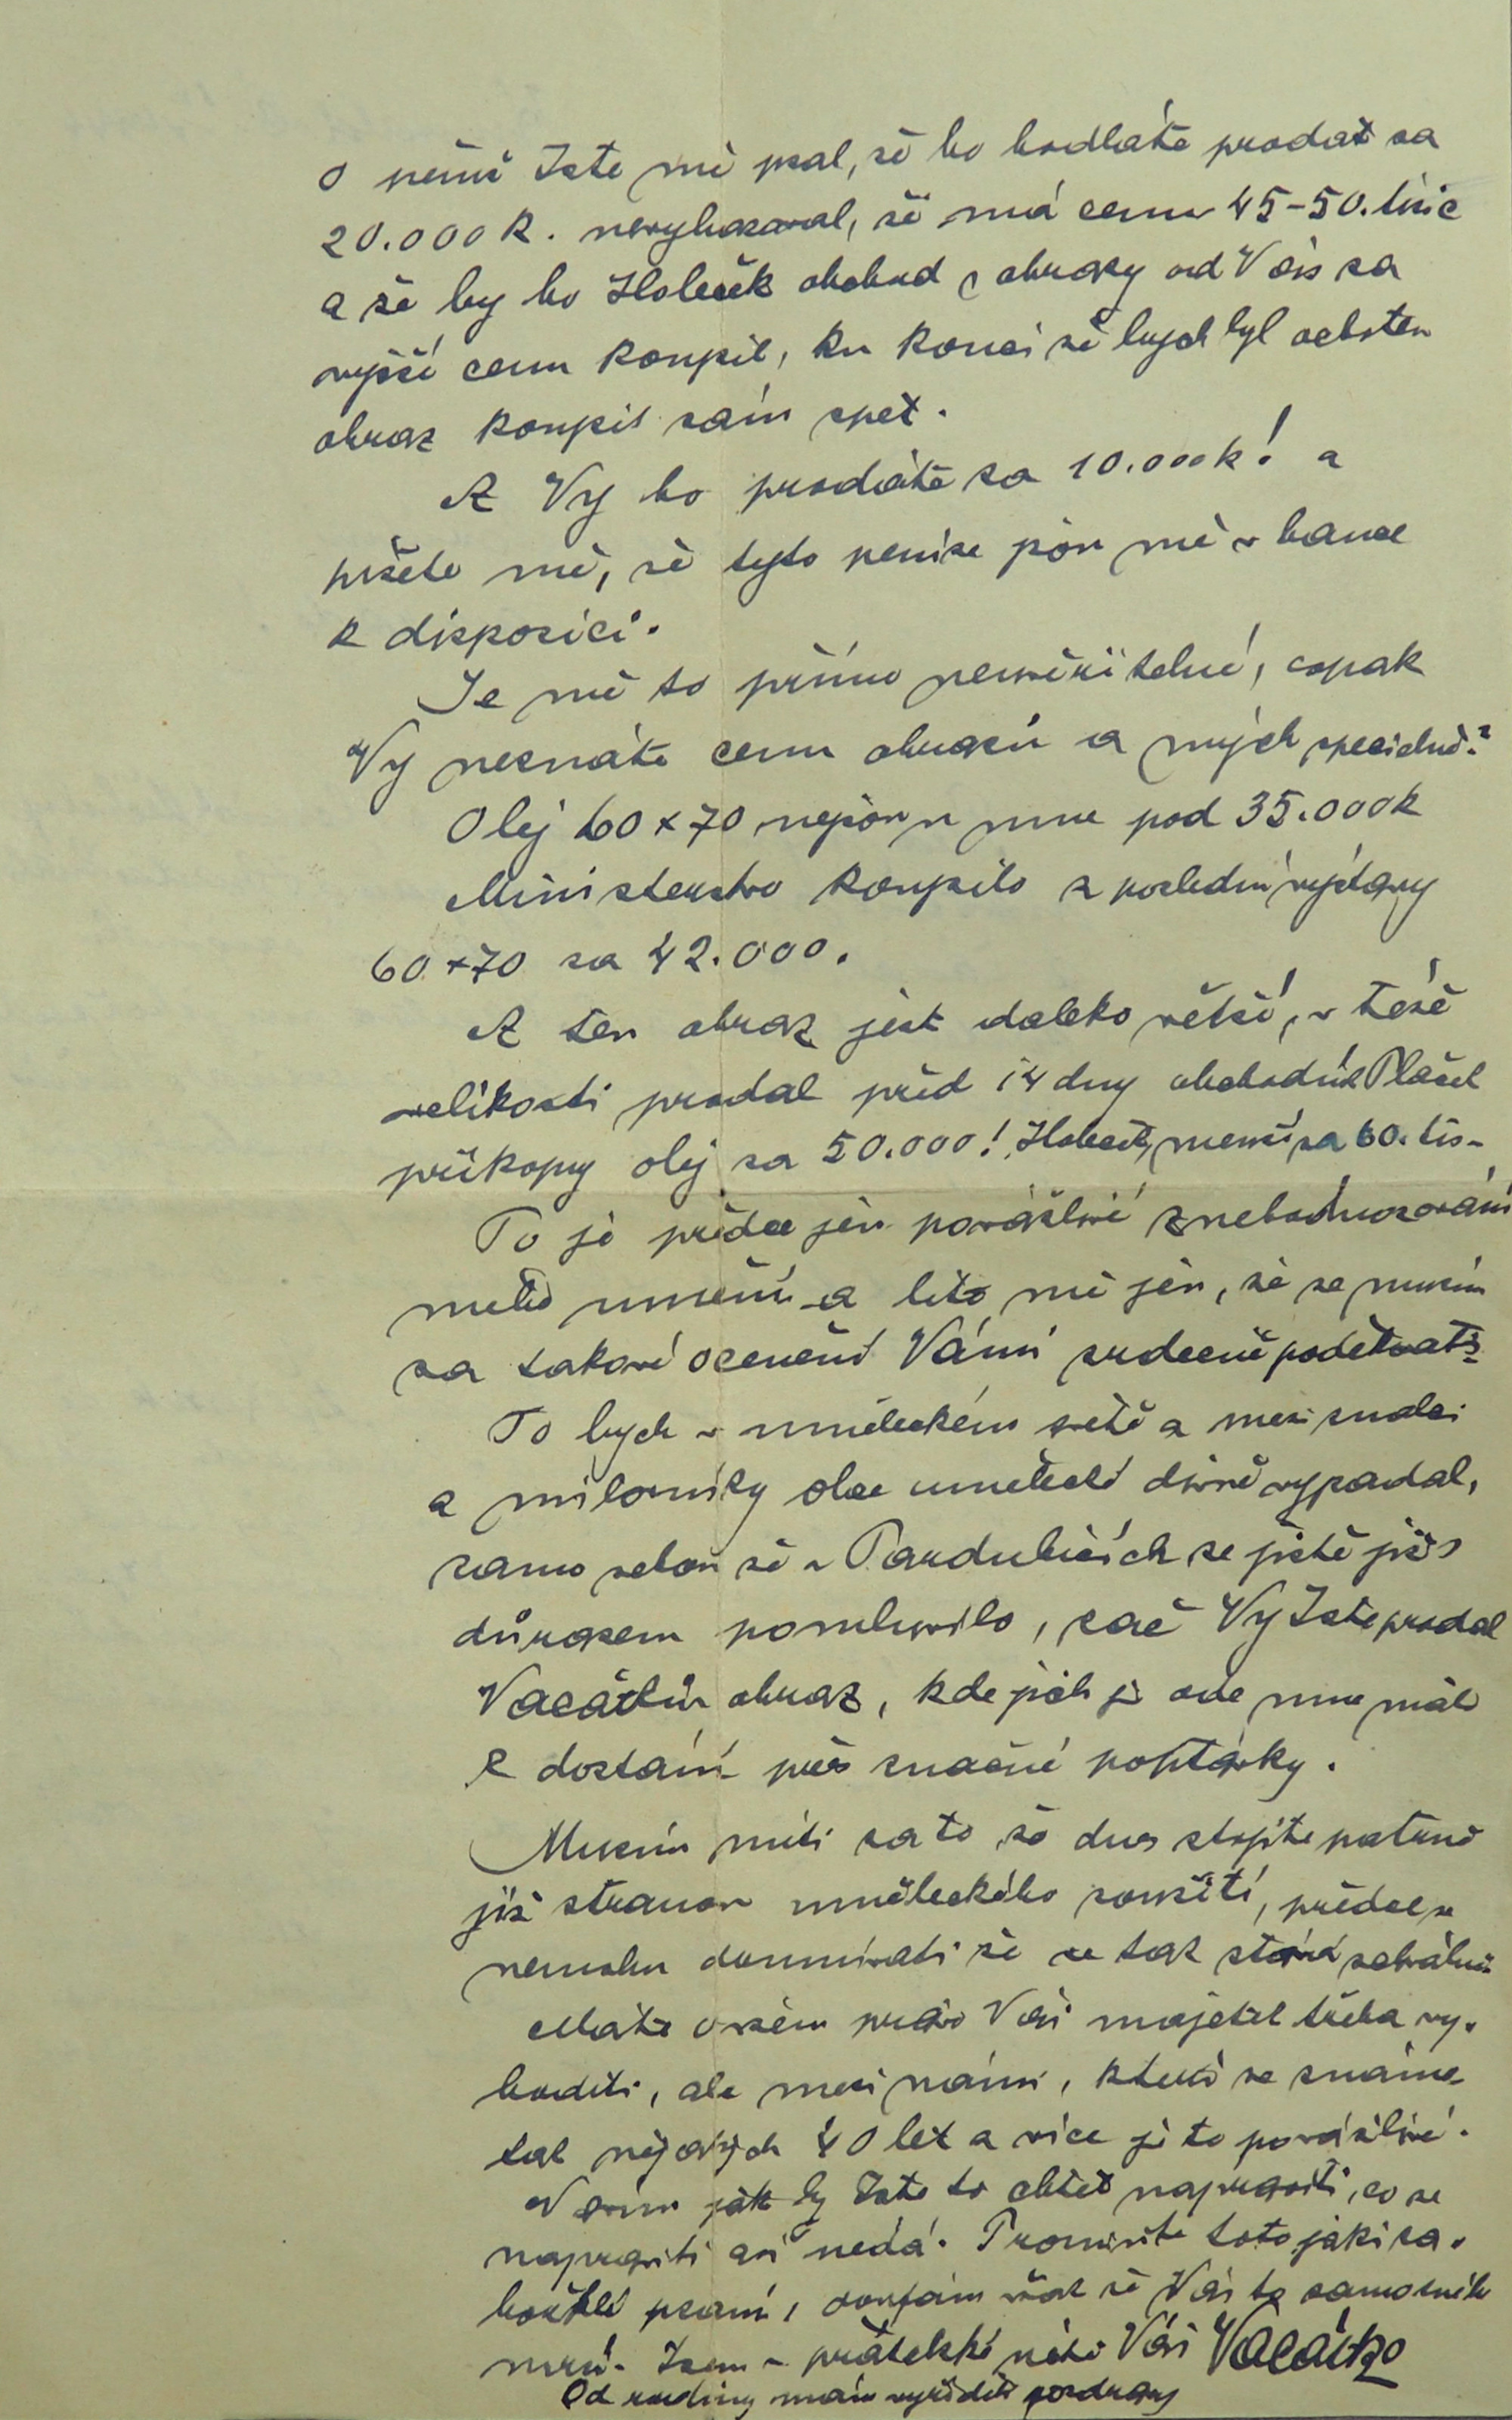 o němž Jste mě psal, že ho hodláte prodat za
20.000 K. nevykázal, že má cenu 45-50. tisíc
a že by ho Holeček obchod s obrazy od Vás za
vyšší cenu koupil, ku konci že bych byl ochoten
obraz koupit sám zpět.
A Vy ho prodáte za 10.000 K! a
píšete mě, že tyto peníze jsou mě v bance
k disposici.
Je mě to přímo neuvěřitelné, copak
Vy neznáte cenu obrazů a mých specielně?
Olej 60 x 70 nejsou u mne pod 35.000 K
Ministerstvo koupilo z poslední výstavy
60 x 70 za 42.000.
A ten obraz jest daleko větší, v téže
velikosti prodal před 14 dny obchodník Plaček
příkopy olej za 50.000! Holeček, menší za 60. tis-
To je přece jen povážlivé znehodnocování
mého umění a líto mě jen, že se musím
za takové ocenění Vámi srdečně poděkovati.
To bych v uměleckém světě a mezi znalci
a milovníky obce umělecké divně vypadal,
samo sebou že v Pardubicích se jistě již s
důrazem pomluvilo, zač Vy Jste prodal
Vacátkův obraz, kde jich je ode mne málo
k dostání přes značné poptávky.
Musím míti za to, že dnes stojíte patrně
již stranou uměleckého soužití, přece se
nemohu domnívati že se tak stává schválně.
Máte ovšem právo Váš majetek třeba vy-
hoditi, ale mezi námi, kteří se známe
tak nějakých 40 let a více je to povážlivé.
Nevím jak by Jste to chtěl napraviti, co se
napraviti asi nedá. Promiňte toto jaksi za-
hořklé psaní, doufám však že Vás to samotného
mrzí. Jsem v přátelské úctě Váš Vacátko
Od rodiny mám vyříditi pozdravy